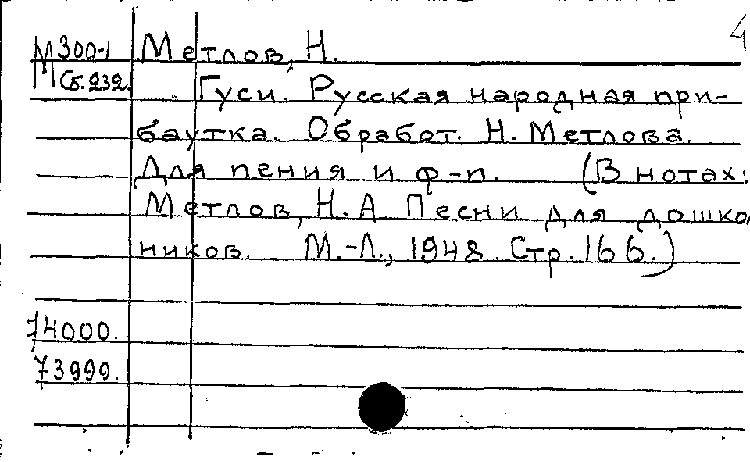 4
М300-1 Метлов, Н.
М Сб. 232. Гуси. Русская народная при-
баутка. Обработ. Н. Метлова.
Для пения и ф-п. (В нотах:
Метлов, Н. А Песни для дошко
ников. М.-Л., 1948. Стр. 166.)
74000.
73999.